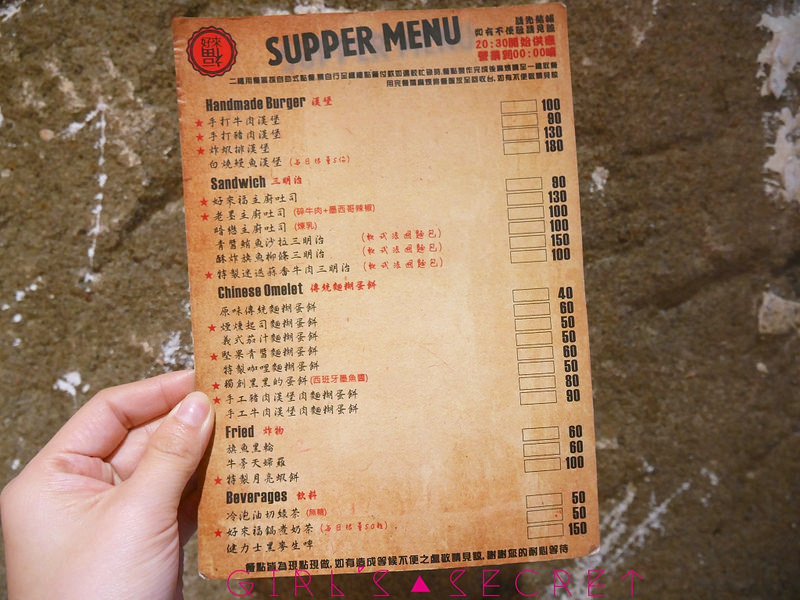 好來
福
SUPPER MENU
請先結帳
如有不便敬請見諒
20:30開始供應
營業到00:00喔
Handmade Burger 漢堡
★ 手打牛肉漢堡 100
★ 手打豬肉漢堡 90
★ 炸蝦排漢堡 130
白燒鰻魚漢堡 (每日限量5份) 180
Sandwich 三明治
★ 好來福主廚吐司 90
★ 老墨主廚吐司 (碎牛肉+墨西哥辣椒) 130
暗戀主廚吐司 (煉乳) 100
青醬鮪魚沙拉三明治 (軟式法國麵包) 100
酥炸旗魚柳條三明治 (軟式法國麵包) 150
★ 特製迷迭蒜香牛肉三明治 (軟式法國麵包) 100
Chinese Omelet 傳統麵糊蛋餅
原味傳統麵糊蛋餅 40
★ 煙燻起司麵糊蛋餅 60
義式茄汁麵糊蛋餅 50
★ 堅果青醬麵糊蛋餅 50
特製咖哩麵糊蛋餅 60
★ 獨創黑黑的蛋餅 (西班牙墨魚醬) 50
★ 手工豬肉漢堡肉麵糊蛋餅 80
手工牛肉漢堡肉麵糊蛋餅 90
Fried 炸物
旗魚黑輪 60
牛蒡天婦羅 60
★ 特製月亮蝦餅 100
Beverages 飲料
冷泡油切綠茶 (無糖) 50
★ 好來福鍋煮奶茶 (每日限量50杯) 50
健力士黑麥生啤 150
餐點皆為現點現做,如有造成等候不便之處敬請見諒,謝謝您的耐心等待
GIRL'S▲SECRET